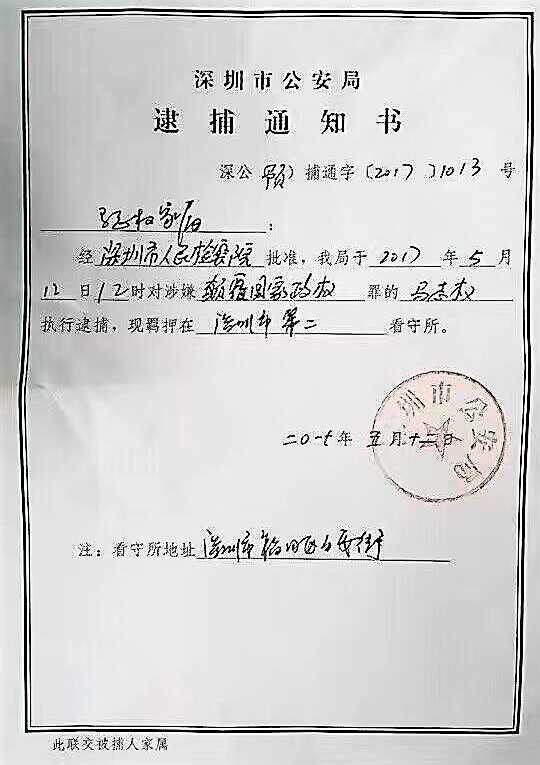 深圳市公安局
逮捕通知书
深公（预）捕通字〔2017〕1013号
马志权家属：
经深圳市人民检察院批准，我局于2017年5月
12日12时对涉嫌颠覆国家政权罪的马志权
执行逮捕，现羁押在深圳市第二看守所。
二〇一七年五月十二日
深圳市公安局
注：看守所地址深圳市
此联交被捕人家属